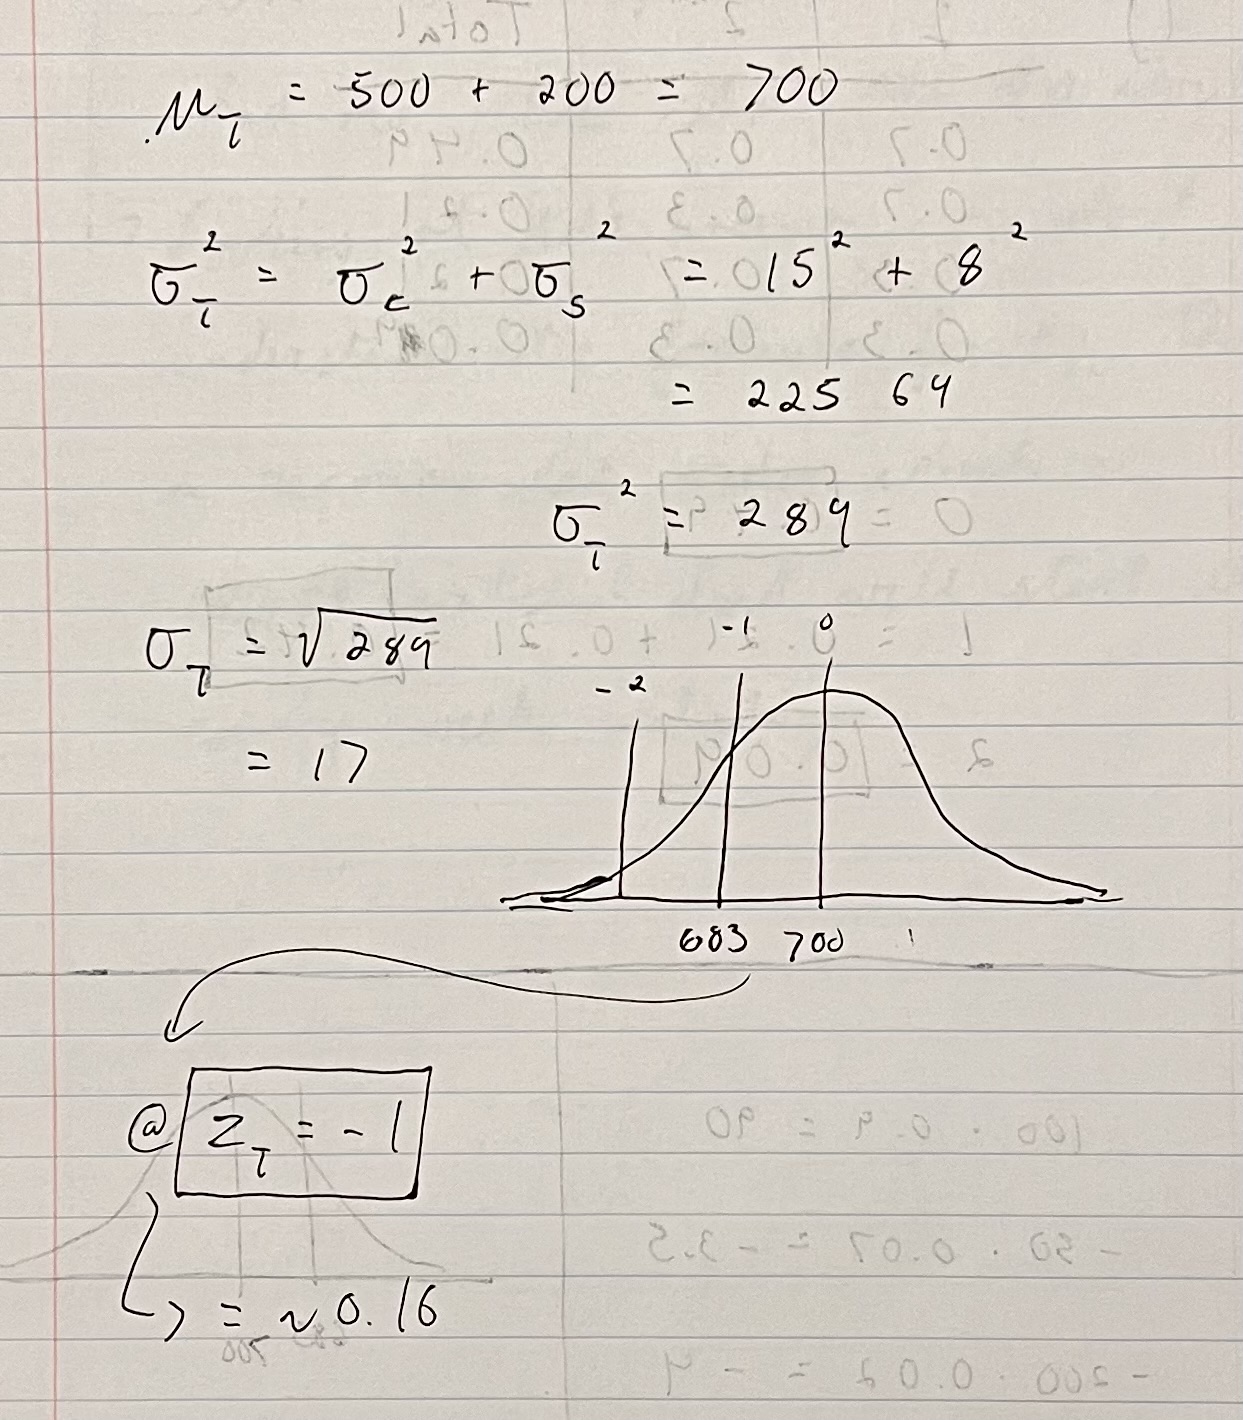 μ_T = 500 + 200 = 700
σ_T² = σ_c² + σ_s² = 15² + 8²
= 225 64
σ_T² = 289
σ_T = √289
-1 0
-2
= 17
683 700
@ Z_T = -1
= ~0.16